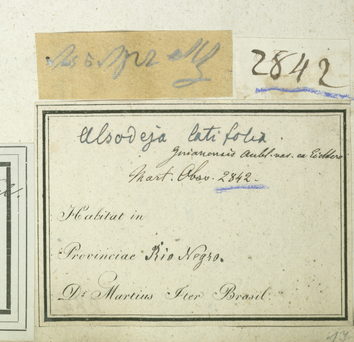 2842
Alsodeja latifolia.
guianensis Aubl. var. ex Eichlero
Mart. Obsv. 2842.
Habitat in
Provinciae Rio Negro.
Dr. Martius Iter Brasil.